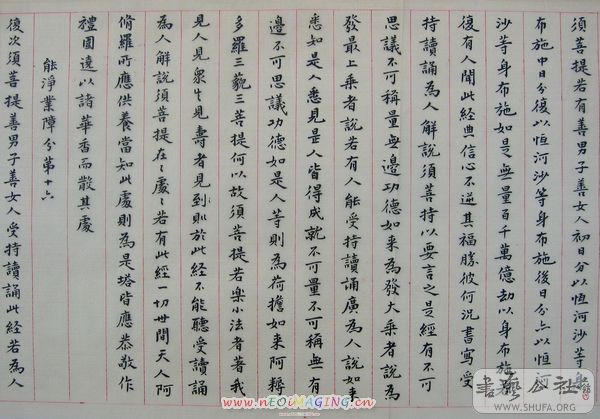 須菩提若有善男子善女人初日分以恒河沙等身
布施中日分復以恒河沙等身布施後日分亦以恒河
沙等身布施如是無量百千萬億劫以身布施若
復有人聞此經典信心不逆其福勝彼何況書寫受
持讀誦為人解說須菩提以要言之是經有不可
思議不可稱量無邊功德如來為發大乘者說為
發最上乘者說若有人能受持讀誦廣為人說如來
悉知是人悉見是人皆得成就不可量不可稱無有
邊不可思議功德如是人等則為荷擔如來阿耨
多羅三藐三菩提何以故須菩提若樂小法者著我
見人見眾生見壽者見則於此經不能聽受讀誦
為人解說須菩提在々處々若有此經一切世間天人阿
脩羅所應供養當知此處則為是塔皆應恭敬作
禮圍遶以諸華香而散其處
能淨業障分第十六
復次須菩提善男子善女人受持讀誦此經若為人
www.nEOiMAGING.cn
書藝公社
WWW.SHUFA.ORG